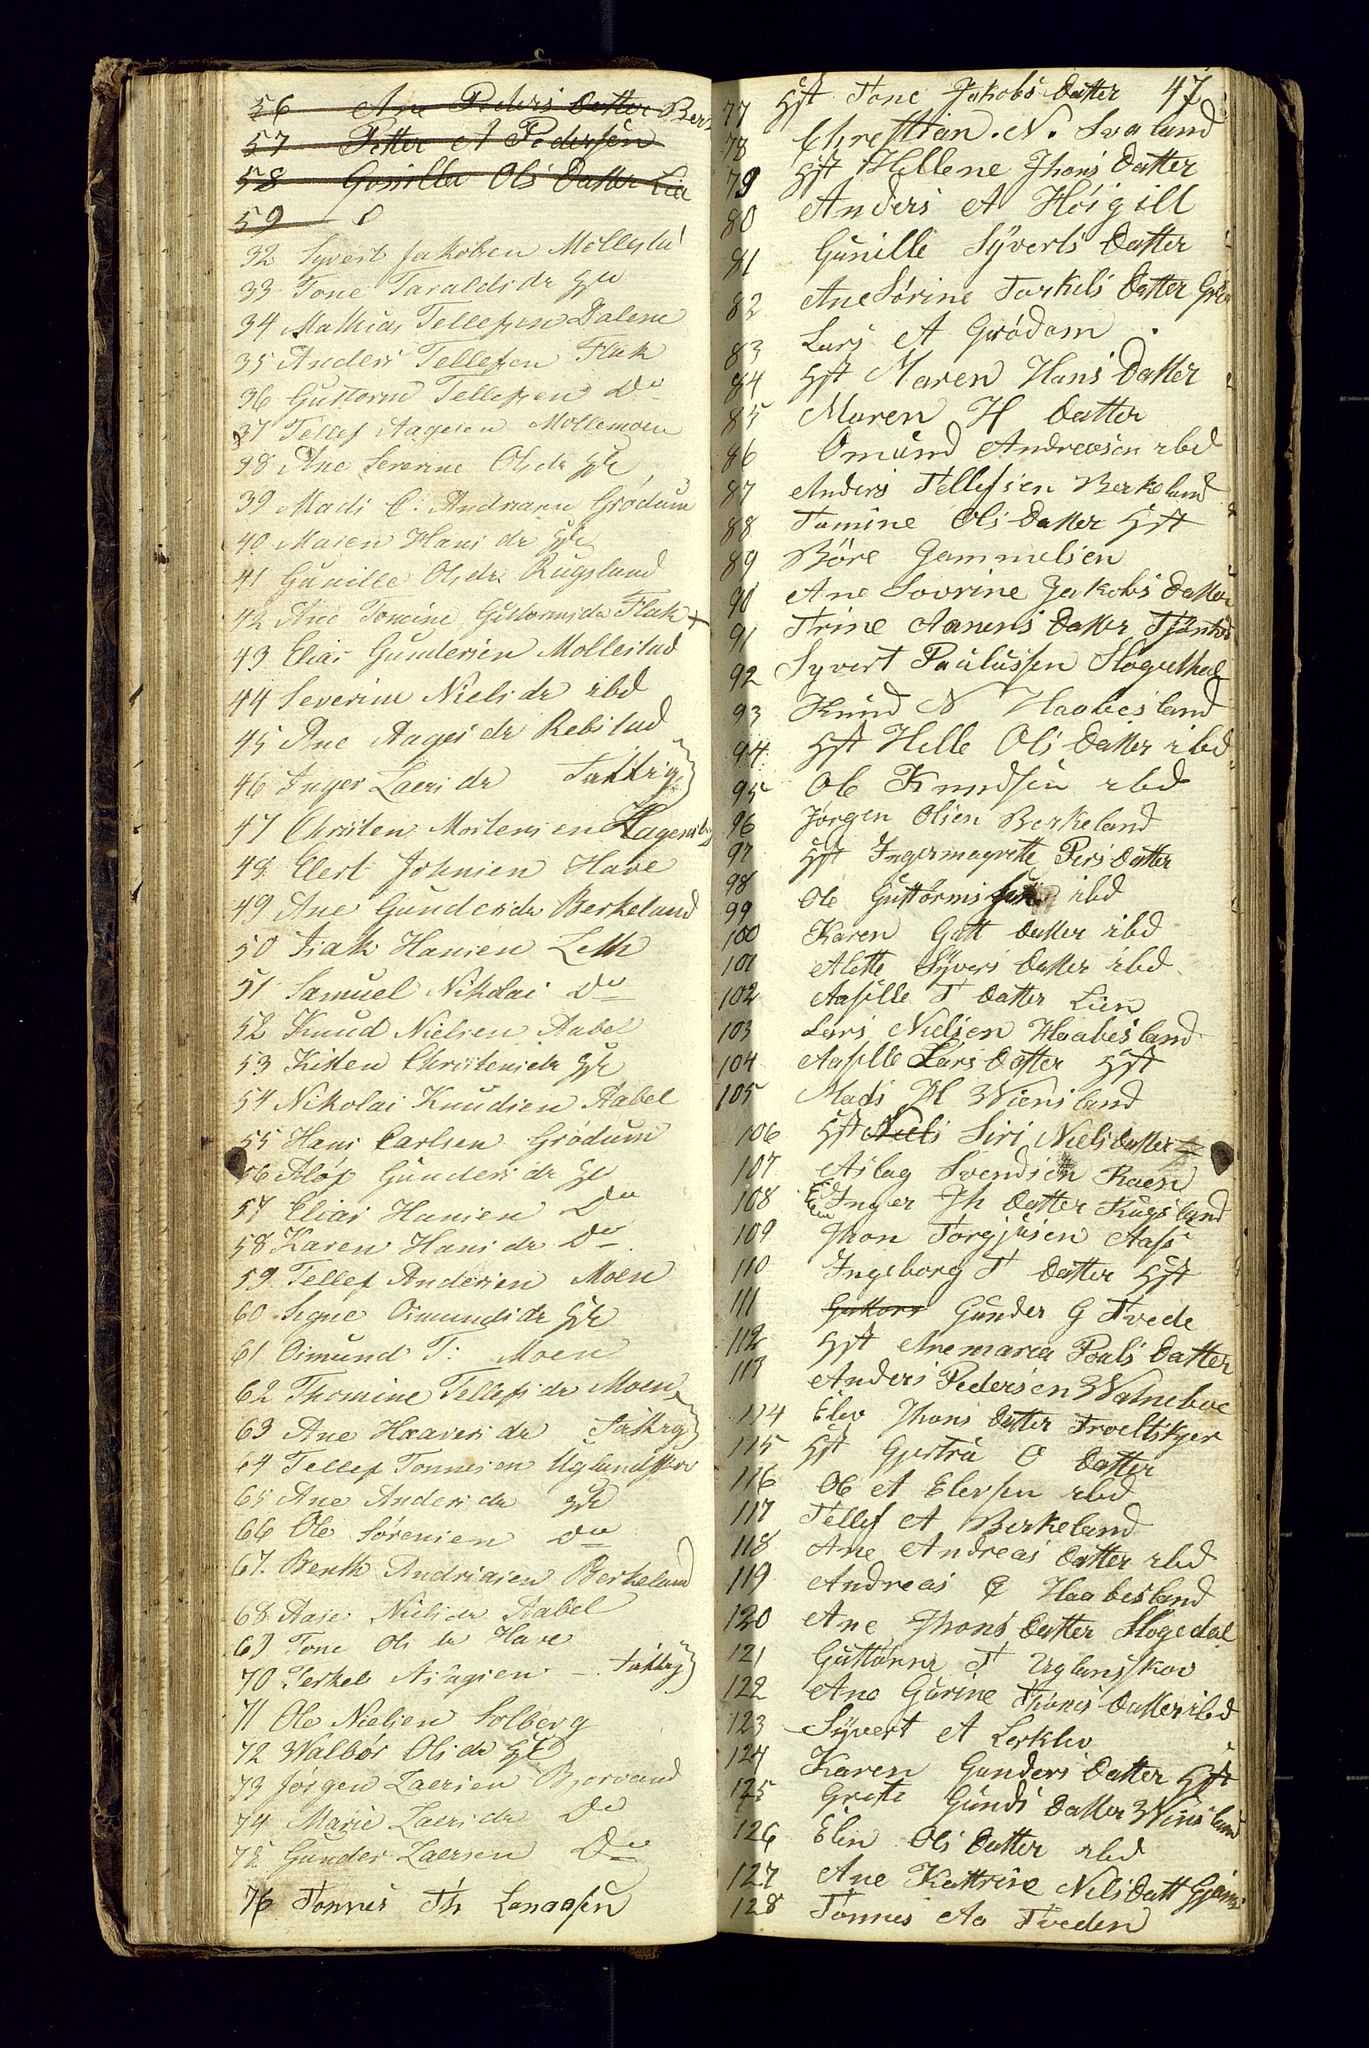 56 Ane Peders Datter Berk
57 Petter A Pedersen
58 Gunilla Ols Datter Lien
59
32 Syvert Jakobsen Mollestad
33 Tone Taraldsdr
34 Mathias Tellefsen Dalene
35 Anders Tellefsen Flak
36 Guttorm Tellefsen Do
37 Tellef Aagesen Mollemoen
38 Ane Severine Olsdr
39 Mads C. Andreasen Grødum
40 Maren Hansdr
41 Gunille Olsdr Rugsland
42 Ane Tomine Guttormsdr Flak +
43 Elias Gundersen Mollestad
44 Severine Nielsdr ibd
45 Ane Aagesdr Rebstad
46 Inger Laersdr Fattig
47 Christen Mortensen
48 Elert Johnsen Have
49 Ane Gundersdr Berkeland
50 Isak Hansen Leth
51 Samuel Nikolai Do
52 Knud Nielsen Aabel
53 Kisten Christensdr
54 Nikolai Knudsen Aabel
55 Hans Carlsen Grødum
56 Gundersdr
57 Elias Hansen Do
58 Karen Hansdr Do
59 Tellef Andersen Moen
60 Signe Osmundsdr
61 Osmund T. Moen
62 Thomine Tellefsdr Moen
63 Ane Haaversdr Fattig
64 Tellef Tønnesen Uglandskov
65 Ane Andersdr
66 Ole Sørensen Do
67. Benth Andriasen Berkeland
68 Aase Nielsdr Aabel
69 Tone Olsdr Have
70 Terkel Aslagsen - Fattig
71 Ole Nielsen Solberg
72 Walbør Olsdr
73 Jørgen Laersen Bjorvand
74 Marie Laersdr Do
75. Gunder Laersen Do
76 Tønnes Th
47
77 Hst Tone Jakobs Datter
78 Chresttian. N. Svaland
79 Hst Hellene Jhons Datter
80 Anders A Høigill
81 Gunille Syverts Datter
82 Ane Sørine Torkels Datter
83 Lars A Grødom
84 Hst Maren Hans Datter
85 Maren H Datter
86 Omund Andreasen ibd
87 Anders Tellefsen Berkeland
88 Tomine Ols Datter Hst
89 Børe Gammelsen
90 Ane Sovrine Jakobs Datter
91 Trine Aanens Datter
92 Syvert Paulussen Slogedhal
93 Knud N Haabesland
94 Hst Helle Ols Datter ibd
95 Ole Knudsen ibd
96 Jørgen Olsen Berkeland
97 Hst Ingermagrette Pers Datter
98
99 Ole Guttorms ibd
100 Karen Gutt Datter ibd
101 Alette Syvers Datter ibd
102 Aasille T Datter Lien
103 Lars Nielsen Haabesland
104 Aasille Lars Datter Hst
105 Mads M Wiensland
106 Hst Niels Siri Niels Datter
107 Aslag Svendsen Kaesn
108 Inger Jh Datter Rugsland
109 Jhon Torgjusen Aas
110 Ingeborg T Datter Hst
111 Guttorm Gunder G Tvede
112 Hst Anemarea Pouls Datter
113 Anders Pedersen Walneboe
114 Elev Jhons Datter
115 Hst Gjertru O Datter
116 Ole A Elevsen ibd
117 Tellef A Berkeland
118 Ane Andreas Datter ibd
119 Andreas Haabesland
120 Ane Jhons Datter Slogedal
121 Guttorm T Uglanskov
122 Ane Gurine Thoms Datter ibd
123 Syvert A Lerklev
124 Karen Gunders Datter Hst
125 Grete Gunds Datter Winsland
126 Elen Ols Datter ibd
127 Ane Kattrine Nils Datt
128 Tønnes Aa Tveden